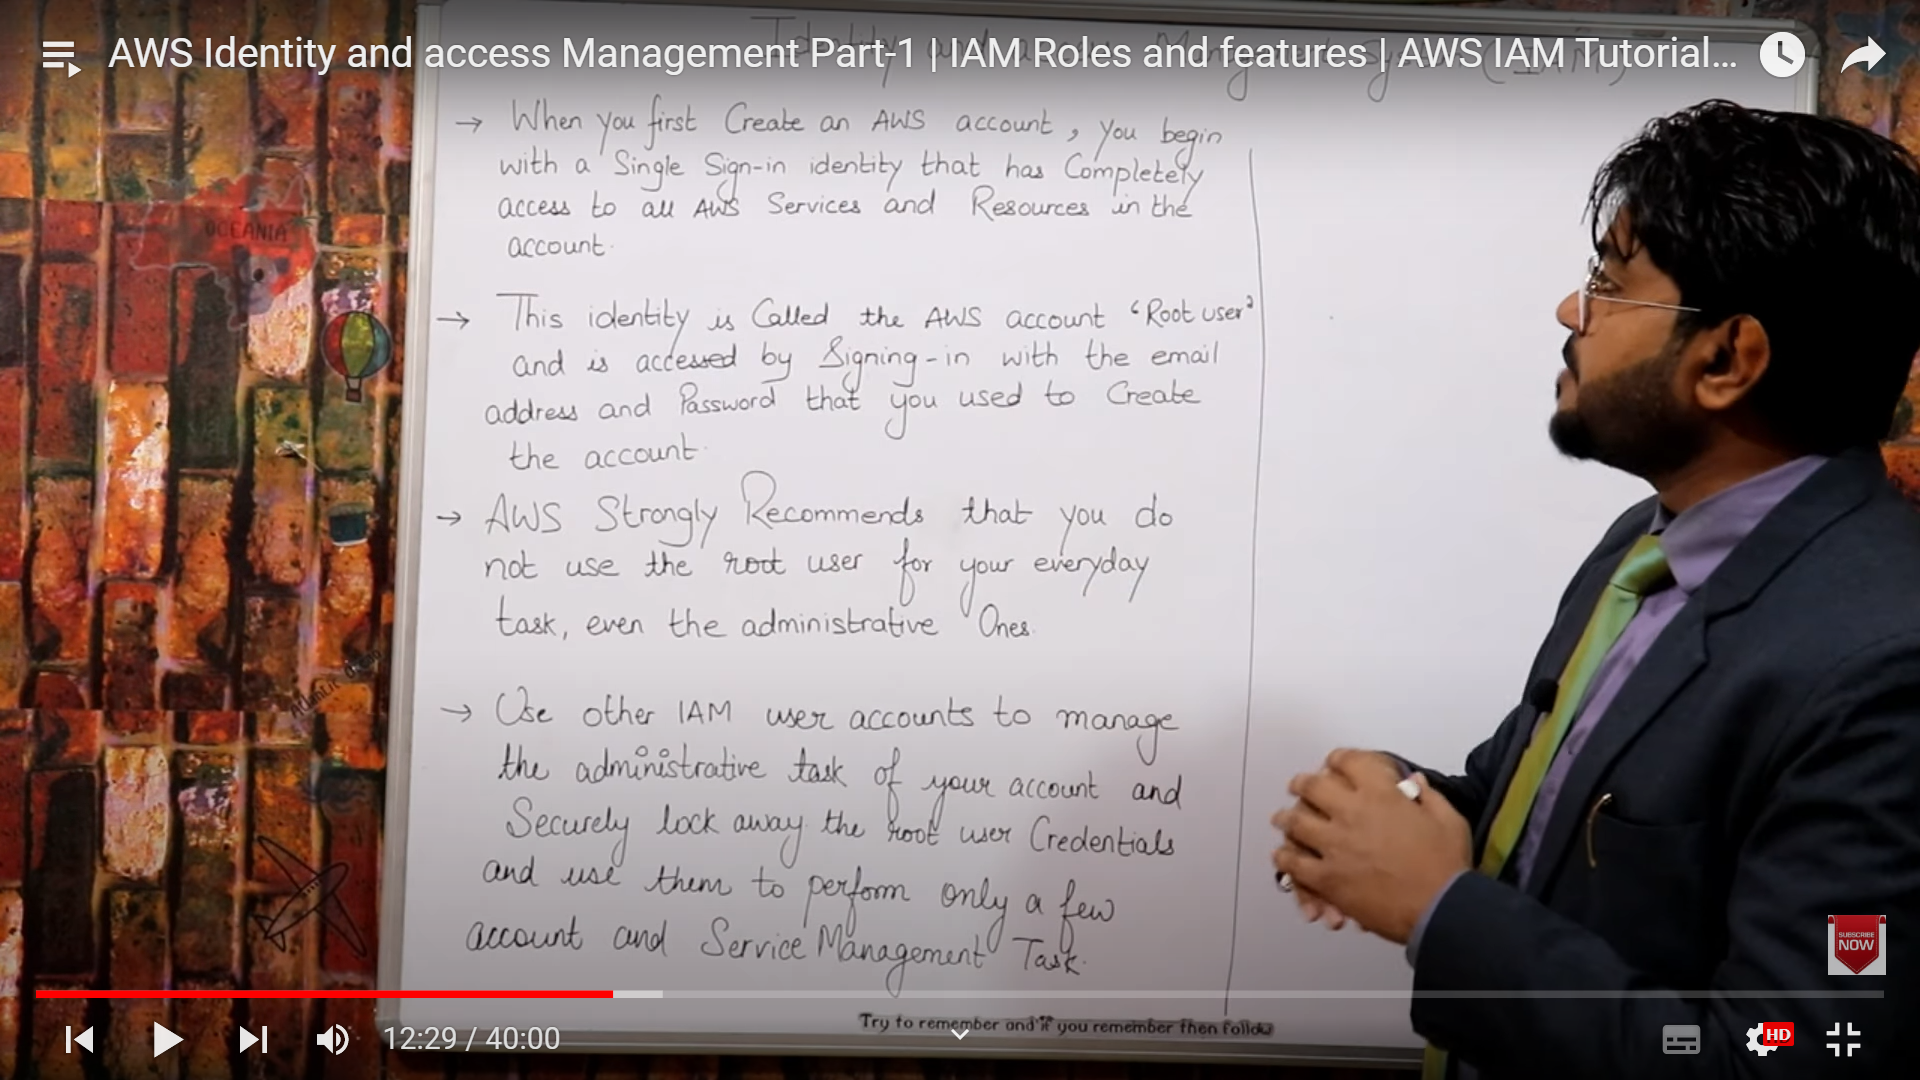 AWS Identity and access Management Part-1 | IAM Roles and features | AWS IAM Tutorial...
Identity and access Management System (IAM)
→ When you first Create an AWS account, you begin
with a Single Sign-in identity that has Completely
access to all AWS Services and Resources in the
account.
→ This identity is Called the AWS account 'Root user'
and is accessed by Signing-in with the email
address and Password that you used to Create
the account.
→ AWS Strongly Recommends that you do
not use the root user for your everyday
task, even the administrative Ones.
→ Use other IAM user accounts to manage
the administrative task of your account and
Securely lock away the root user Credentials
and use them to perform only a few
account and Service Management Task.
OCEANIA
Atlantic Ocean
SUBSCRIBE
NOW
Try to remember and if you remember then follow
12:29 / 40:00
HD